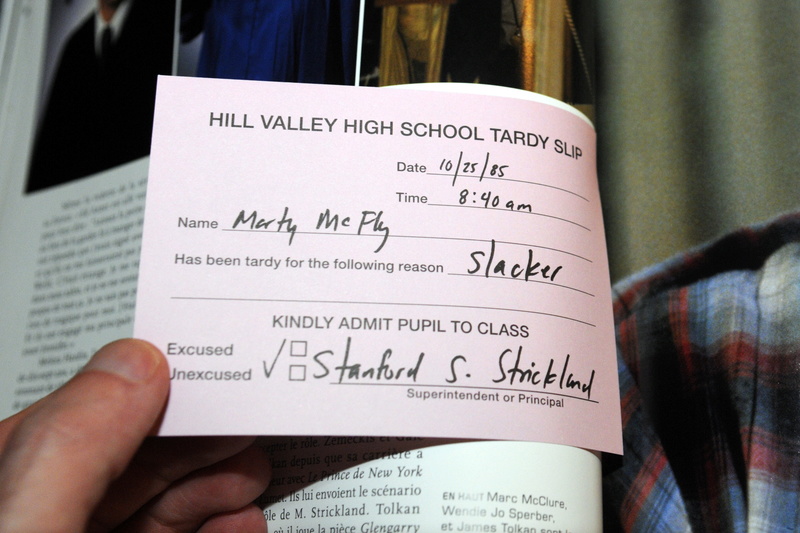 HILL VALLEY HIGH SCHOOL TARDY SLIP
Date 10/25/85
Time 8:40 am
Name Marty McFly
Has been tardy for the following reason Slacker
KINDLY ADMIT PUPIL TO CLASS
Excused
Unexcused ✓ Stanford S. Strickland
Superintendent or Principal
le rôle. Zemeckis et Gale
kan depuis que sa carrière a
avec Le Prince de New York
met. Ils lui envoient le scénario
ôle de M. Strickland. Tolkan
où il joue la pièce Glengarry
EN HAUT Marc McClure,
Wendie Jo Sperber,
et James Tolkan